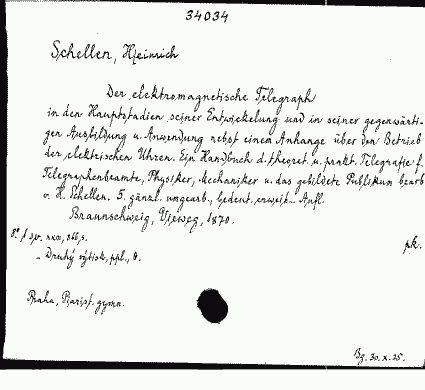 34034
Schellen, Heinrich
Der elektromagnetische Telegraph
in den Hauptstadien seiner Entwickelung und in seiner gegenwärti-
gen Ausbildung u. Anwendung nebst einem Anhange über den Betrieb
der elektrischen Uhren. Ein Handbuch d. theoret. u. prakt. Telegraphie f.
Telegraphenbeamte, Physiker, Mechaniker u. das gebildete Publikum bearb.
v. H. Schellen. 5. gänzl. umgearb., bedeut. erweit. Aufl.
Braunschweig, Vieweg, 1870.
8° XXIII, 866, s.
pk.
- Druhý výtisk, ppl.,
Praha, Piarist. gymn.
30. X. 25.